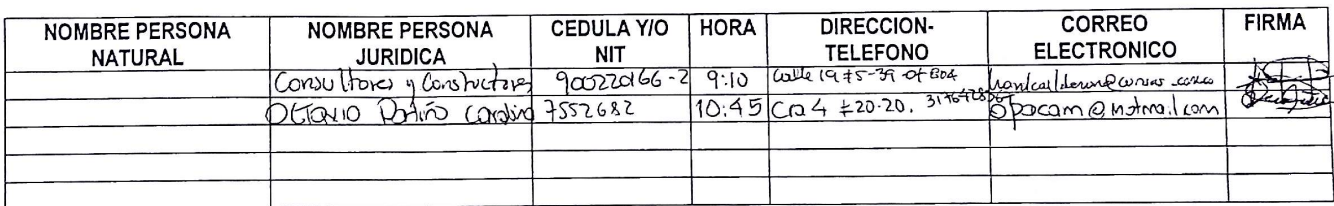 NOMBRE PERSONA NATURAL NOMBRE PERSONA JURIDICA CEDULA Y/O NIT HORA DIRECCION-TELEFONO CORREO ELECTRONICO FIRMA
Consultores y Constructores 900220166-2 9:10 Calle 19 #5-39 of 804
Octavio Patiño 7552682 10:45 Cra 4 #20-20. opacam@hotmail.com